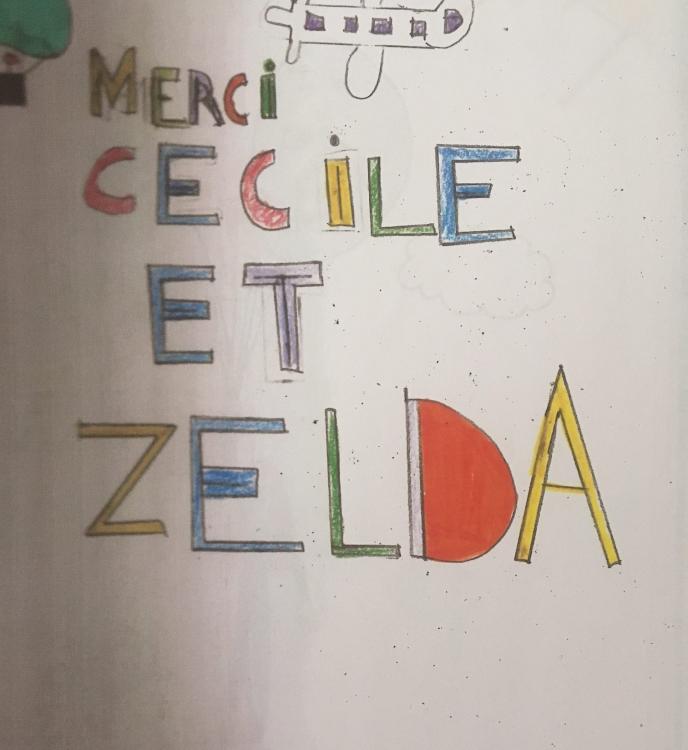 MERCi
CECiLE
ET
ZELDA